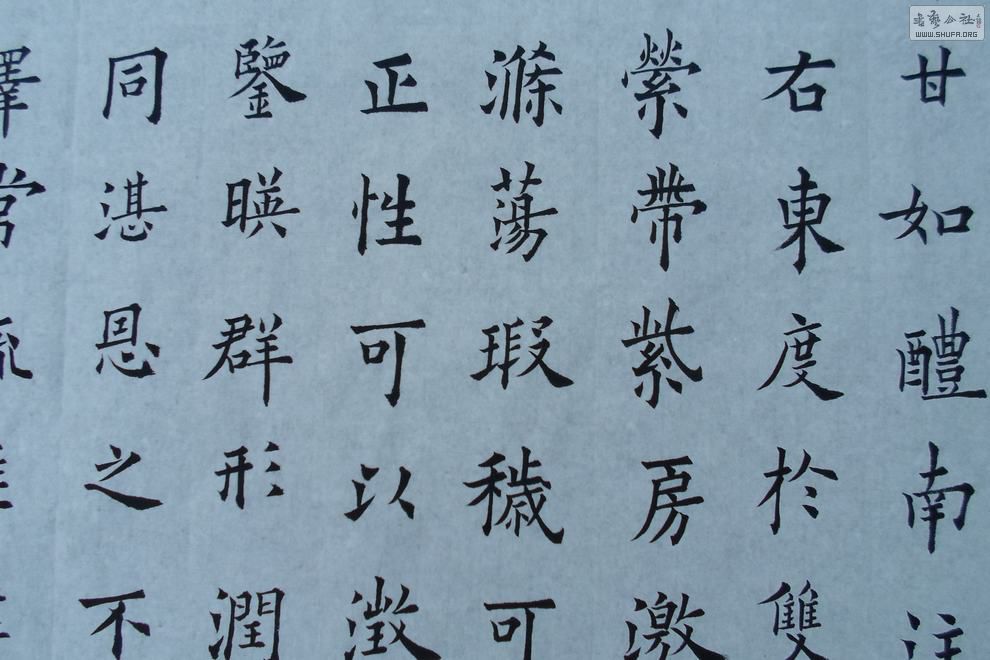 甘如醴南注
右東度於雙
縈帶紫房激
滌蕩瑕穢可
正性可以澂
鑒暎群形潤
同湛恩之不
書藝公社
WWW.SHUFA.ORG